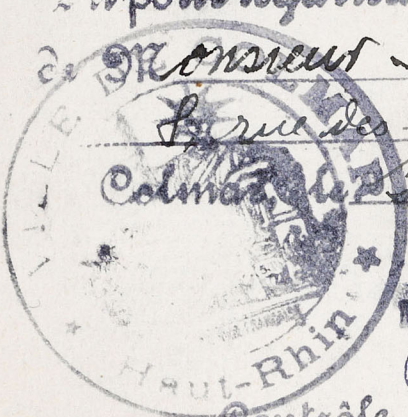 de Monsieur
rue des
Colmar, le
VILLE DE COLMAR
Haut-Rhin
Contrôle